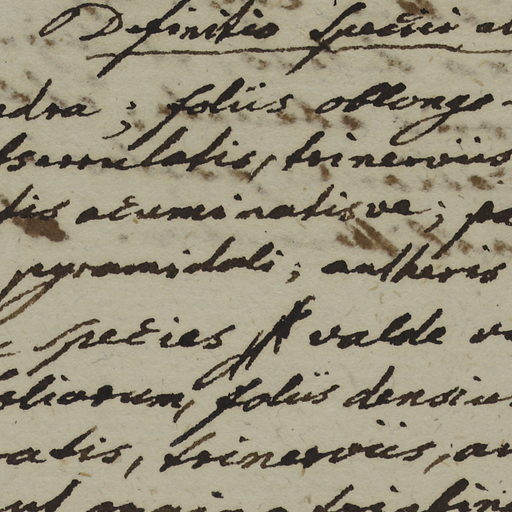 Definitio speciei
ndra; foliis oblongo-
serrulatis, trinerviis
tis acuminatisve; pa
pyramidali; antheris
species valde va
foliorum, foliis densius
atis, trinerviis, au